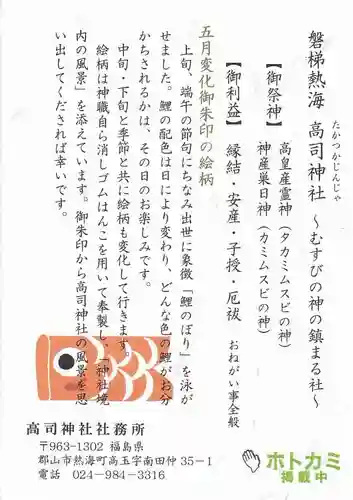 磐梯熱海 高司神社 ～むすびの神の鎮まる社～
たかつかじんじゃ
【御祭神】 高皇産霊神（タカミムスビの神）
神産巣日神（カミムスビの神）
【御利益】 縁結・安産・子授・厄祓 おねがい事全般
五月変化御朱印の絵柄
上旬、端午の節句にちなみ出世に象徴「鯉のぼり」を泳が
せました。鯉の配色は日により変わり、どんな色の鯉がお分
かちされるかは、その日のお楽しみです。
中旬・下旬と季節と共に絵柄も変化して行きます。
絵柄は神職自ら消しゴムはんこを用いて奉製し、「神社境
内の風景」を添えています。御朱印から高司神社の風景を思
い出してくだされば幸いです。
高司神社社務所
〒963-1302 福島県
郡山市熱海町高玉字南田仲35－1
電話 024-984-3316
ホトカミ
掲載中